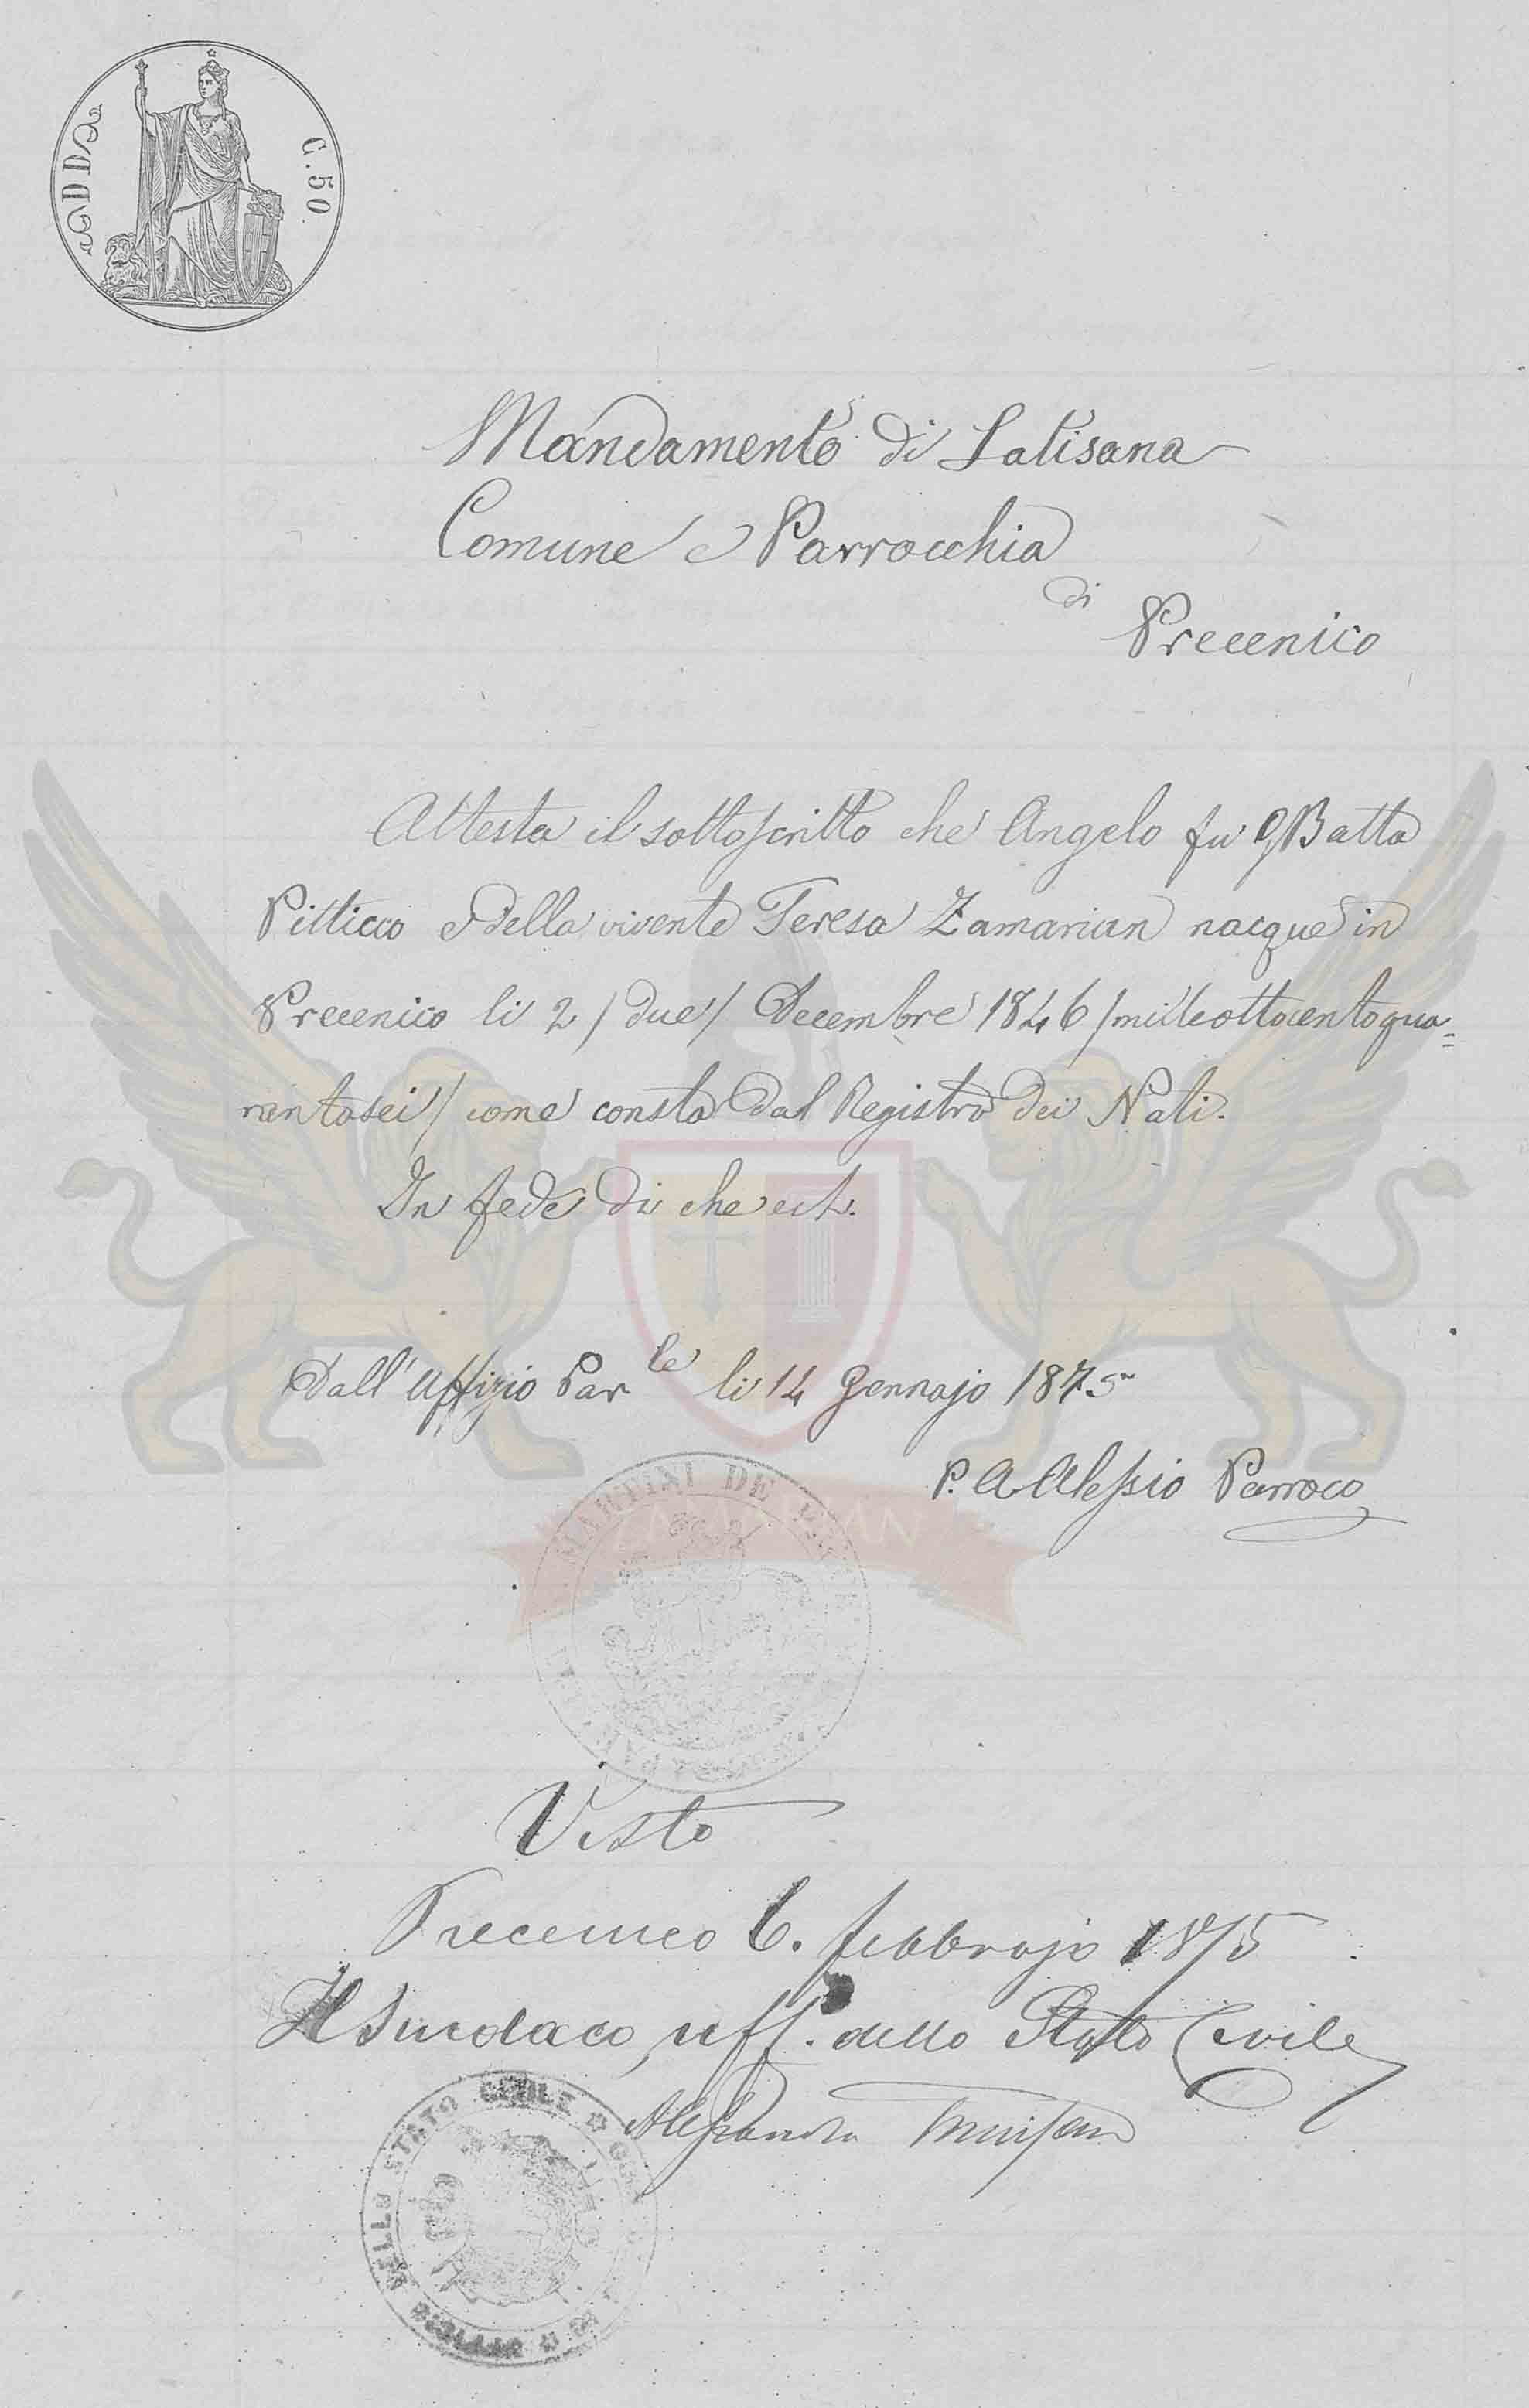 C. 50
Mandamento di Latisana
Comune e Parrocchia
di
Precenico
Attesta il sottoscritto che Angelo fu GBatta
Pitticco e della vivente Teresa Zamarian nacque in
Precenico li 2 / due / Decembre 1846 / milleottocentoqua=
rantasei / come consta dal Registro dei Nati.
In fede di che ect.
Dall'Uffizio Par le li 14 Gennajo 1875
P. A Alessio Parroco
MARTINI DE
ZAMARIAN
Visto
Precenico 6. febbrajo 1875
Il Sindaco, uff. dello Stato Civile
Alessandro
UFFICIO DELLO STATO CIVILE